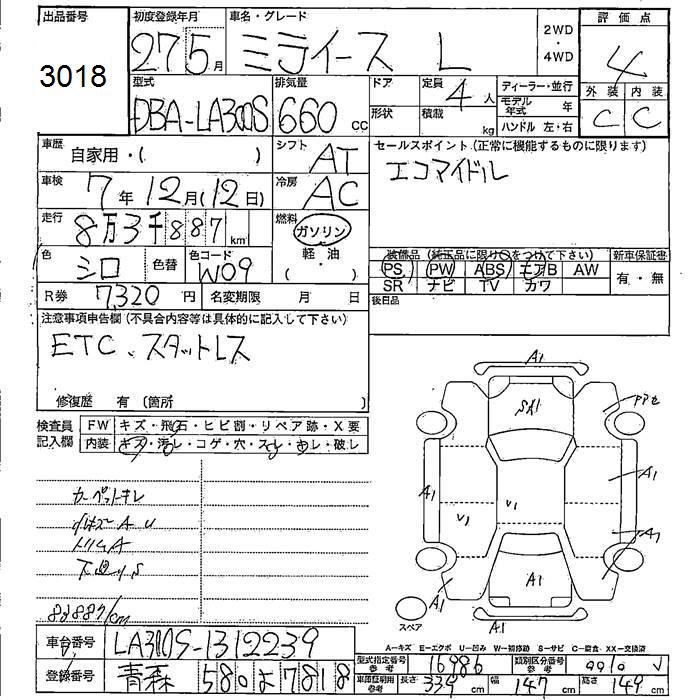 出品番号 3018
初度登録年月 27 5月
車名・グレード ミライース L
2WD・4WD
評価点 4
型式 DBA-LA300S
排気量 660 cc
ドア
形状
定員 4人
積載 kg
ディーラー・並行
モデル年式 年
ハンドル 左・右
外装 C
内装 C
車歴 自家用・( )
シフト AT
セールスポイント(正常に機能するものに限ります)
エコアイドル
車検 7年12月(12日)
冷房 AC
走行 8万3千887km
燃料 ガソリン 軽・油 ( )
色 シロ 色替
色コード W09
装備品(純正品に限り○をつけて下さい)
PS PW ABS エアB AW
SR ナビ TV カワ
新車保証書 有・無
R券 7,320円
名変期限 月 日
後日品
注意事項申告欄(不具合内容等は具体的に記入して下さい)
ETC、スタットレス
修復歴 有 (箇所 )
検査員記入欄
FW キズ・飛石・ヒビ割・リペア跡・X要
内装 キズ・汚レ・コゲ・穴・スレ・キレ・破レ
カーペットキレ
トリムA
83887km
A1
SA1
A1
A1
V1
V1
A1
A1
A1
A1
A1
スペア
A-キズ E-エクボ U-凹み W-補修跡 S-サビ C-腐食 XX-交換済
車台番号 LA300S-1312239
登録番号 青森 580 よ 7818
型式指定番号 参考 16986
類別区分番号 参考
車庫証明用 参考 長さ 339cm 幅 147cm 高さ 149cm